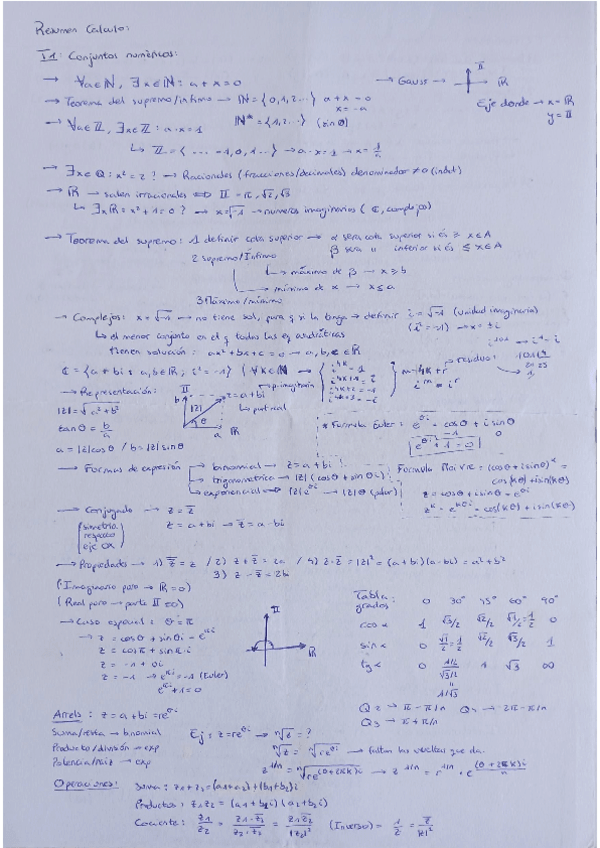 Resumen Calculo:
T1: Conjuntos numéricos:
→ ∀a∈ℕ, ∃x∈ℕ: a+x=0
→ Gauss → II ℝ
→ Teorema del supremo/ínfimo → ℕ = {0,1,2...} a+x=0
x=-a
Eje donde → x=ℝ
y=II
→ ∀a∈ℤ, ∃x∈ℤ: a·x=1 ℕ* = {1,2...} (sin 0)
↳ ℤ = {... -1,0,1...} → a·x=1 → x=1/a
→ ∃x∈ℚ: x²=2? → Racionales (fracciones/decimales) denominador ≠0 (indet)
→ ℝ → salen irracionales ⇔ II - π, √2, √3
↳ ∃x∈ℝ: x²+1=0? → x=√-1 → números imaginarios (ℂ, complejos)
→ Teorema del supremo: 1 definir cota superior → α sera cota superior si és ≥ x∈A
β sera " inferior si és ≤ x∈A
2 supremo/Ínfimo
↳ máximo de β → x≥b
↳ mínimo de α → x≤a
3 Máximo/mínimo
→ Complejos: x=√-1 → no tiene sol, para q si la tenga → definir i=√-1 (unidad imaginaria)
↳ el menor conjunto en el q todas las eq cuadráticas (i²=-1) → x=±i
tienen solución: ax²+bx+c=0 → a,b,c∈ℝ
ℂ = {a+bi : a,b∈ℝ; i²=-1} {∀K∈ℕ → i^4K = 1
i^4K+1 = i
i^4K+2 = -1
i^4K+3 = -i} m=4K+r
i^m = i^r
→ residuo:
→ Representación: II z=a+bi
p.imaginaria
p.t real
|z|=√a²+b²
tanθ = b/a
a=|z|cosθ / b=|z|sinθ
* Formula Euler: e^θi = cosθ + i sinθ
e^πi + 1 = 0
→ Formas de expresión → binomial → z=a+bi
trigonometrica → |z|(cosθ+sinθi)
exponencial → |z|e^θi → |z|θ (polar)
Formula Moivre = (cosθ+isinθ)^K =
cos(Kθ)+isin(Kθ)
z=cosθ+isinθ=e^θi
z^K=e^Kθi=cos(Kθ)+isin(Kθ)
→ Conjugado → z̄
(simetria respecto eje OX) z=a+bi → z̄=a-bi
→ Propiedades → 1) z̿=z / 2) z+z̄=2a / 4) z·z̄=|z|²=(a+bi)(a-bi)=a²+b²
3) z-z̄=2bi
(*Imaginario puro → ℝ=0)
(Real puro → parte II=0)
→ Caso especial: θ=π
→ z=cosθ+sinθi=e^θi
→ z=cosπ+sinπ·i
→ z=-1+0i
→ z=-1 → e^πi=-1 (Euler)
e^πi+1=0
II ℝ
Tabla grados: 0 30° 45° 60° 90°
cos α 1 √3/2 √2/2 √1/2=1/2 0
sin α 0 √1/2=1/2 √2/2 √3/2 1
tg α 0 1/2 / √3/2 = 1/√3 1 √3 ∞
Q2 → π-π/n Q4 → 2π-π/n
Q3 → π+π/n
Arrels: z=a+bi=re^θi
Suma/resta → binomial Ej: z=re^θi → ⁿ√z=?
Producto/división → exp ⁿ√z=ⁿ√re^θi → faltan las vueltas que da.
Potencia/raiz → exp z^1/n=ⁿ√re^(θ+2πK)i → z^1/n=r^1/n·e^(θ+2πK)i/n
Operaciones: Suma: z1+z2=(a1+a2)+(b1+b2)i
Productos: z1z2=(a1+b1i)(a2+b2i)
Cociente: z1/z2 = z1·z̄2/z2·z̄2 = z1z̄2/|z2|² (Inverso)= 1/z = z̄/|z|²